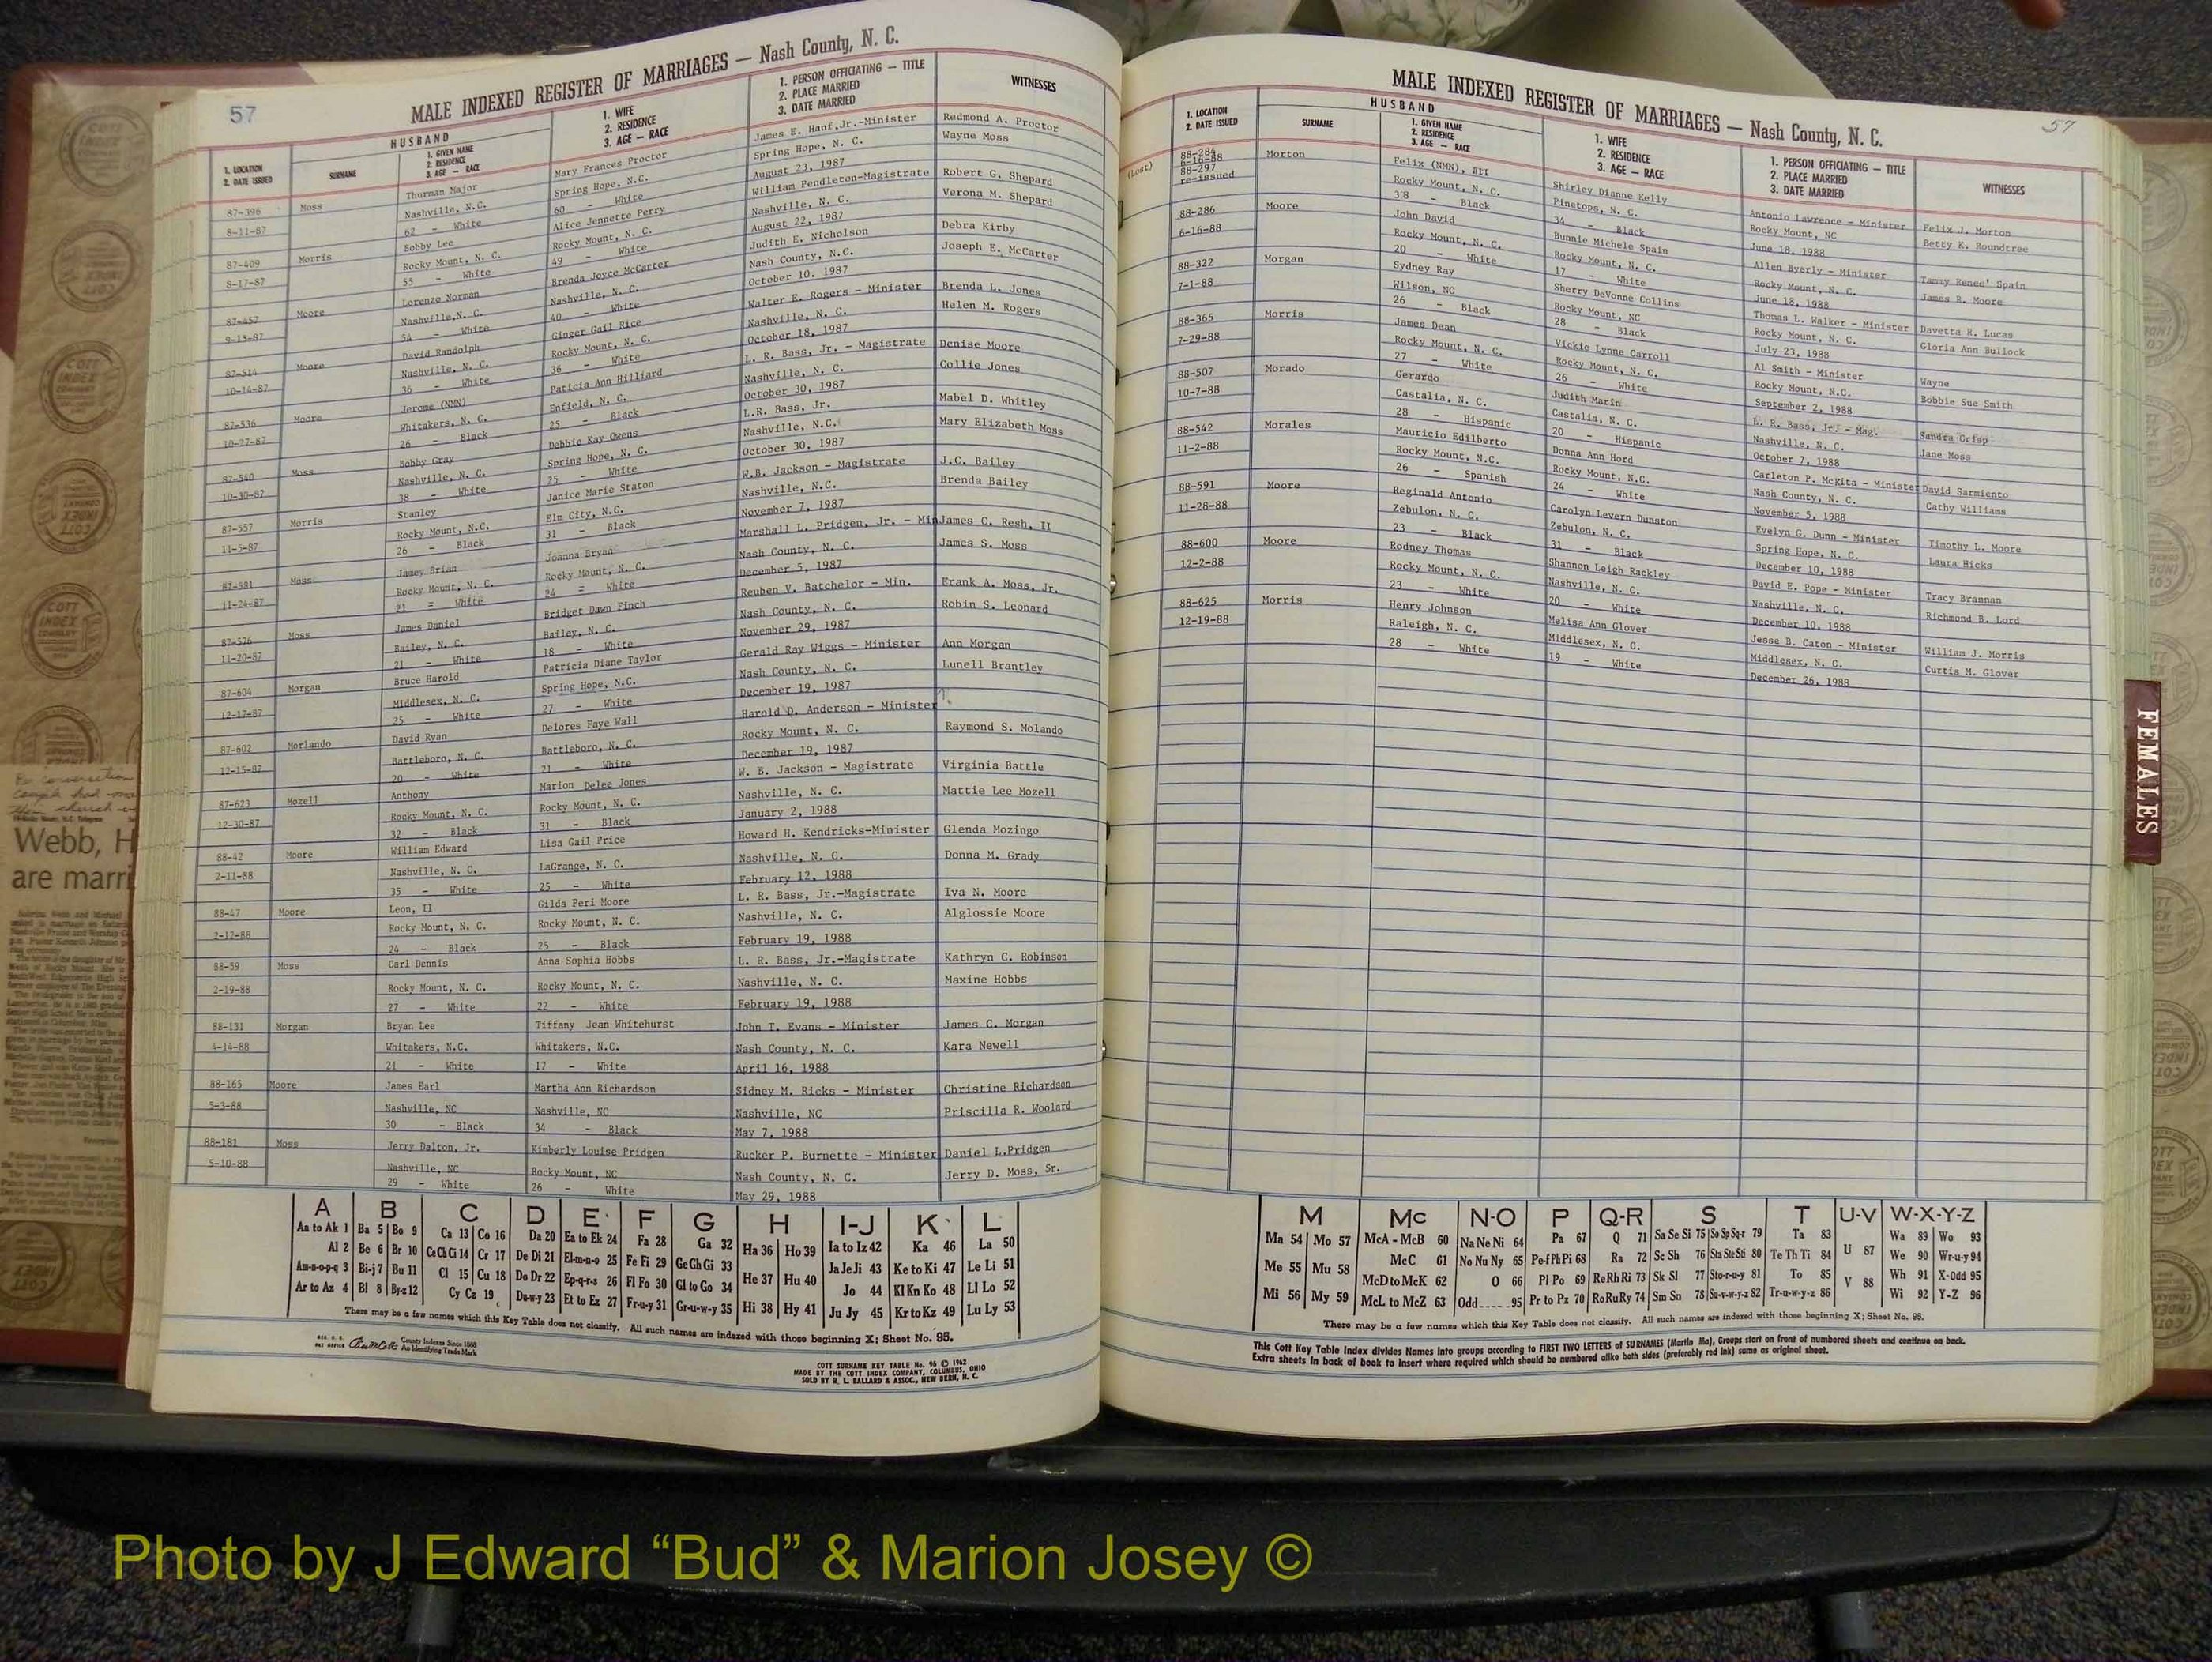 57
MALE INDEXED REGISTER OF MARRIAGES — Nash County, N. C.
1. LOCATION
2. DATE ISSUED
HUSBAND
SURNAME
1. GIVEN NAME
2. RESIDENCE
3. AGE — RACE
1. WIFE
2. RESIDENCE
3. AGE — RACE
1. PERSON OFFICIATING — TITLE
2. PLACE MARRIED
3. DATE MARRIED
WITNESSES
87-396 Moss Thurman Major Mary Frances Proctor James E. Hanf,Jr.-Minister Redmond A. Proctor
8-11-87 Nashville, N.C. Spring Hope, N.C. Spring Hope, N. C. Wayne Moss
62 - White 60 - White August 23, 1987
87-409 Morris Bobby Lee Alice Jennette Perry William Pendleton-Magistrate Robert G. Shepard
8-17-87 Rocky Mount, N. C. Rocky Mount, N. C. Nashville, N. C. Verona M. Shepard
55 - White 49 - White August 22, 1987
87-457 Moore Lorenzo Norman Brenda Joyce McCarter Judith E. Nicholson Debra Kirby
9-15-87 Nashville,N. C. Nashville, N. C. Nash County, N.C. Joseph E. McCarter
54 - White 40 - White October 10. 1987
87-514 Moore David Randolph Ginger Gail Rice Walter E. Rogers - Minister Brenda L. Jones
10-14-87 Nashville, N. C. Rocky Mount, N. C. Nashville, N. C. Helen M. Rogers
36 - White 36 - White October 18, 1987
87-536 Moore Jerome (NMN) Paticia Ann Hilliard L. R. Bass, Jr. - Magistrate Denise Moore
10-27-87 Whitakers, N. C. Enfield, N. C. Nashville, N. C. Collie Jones
26 - Black 25 - Black October 30, 1987
87-540 Moss Bobby Gray Debbie Kay Owens L.R. Bass, Jr. Mabel D. Whitley
10-30-87 Nashville, N. C. Spring Hope, N. C. Nashville, N.C. Mary Elizabeth Moss
38 - White 25 - White October 30, 1987
87-557 Morris Stanley Janice Marie Staton W.B. Jackson - Magistrate J.C. Bailey
11-5-87 Rocky Mount, N.C. Elm City, N.C. Nashville, N.C. Brenda Bailey
26 - Black 31 - Black November 7, 1987
87-581 Moss Jamey Brian Joanna Bryan Marshall L. Pridgen, Jr. - Min James C. Resh, II
11-24-87 Rocky Mount, N. C. Rocky Mount, N. C. Nash County, N. C. James S. Moss
21 = White 24 = White December 5, 1987
87-576 Moss James Daniel Bridget Dawn Finch Reuben V. Batchelor - Min. Frank A. Moss, Jr.
11-20-87 Bailey, N. C. Bailey, N. C. Nash County, N. C. Robin S. Leonard
21 - White 18 - White November 29, 1987
87-604 Morgan Bruce Harold Patricia Diane Taylor Gerald Ray Wiggs - Minister Ann Morgan
12-17-87 Middlesex, N. C. Spring Hope, N.C. Nash County, N. C. Lunell Brantley
25 - White 27 - White December 19, 1987
87-602 Morlando David Ryan Delores Faye Wall Harold D. Anderson - Minister
12-15-87 Battleboro, N. C. Battleboro, N. C. Rocky Mount, N. C. Raymond S. Molando
20 - White 21 - White December 19, 1987
87-623 Mozell Anthony Marion Delee Jones W. B. Jackson - Magistrate Virginia Battle
12-30-87 Rocky Mount, N. C. Rocky Mount, N. C. Nashville, N. C. Mattie Lee Mozell
32 - Black 31 - Black January 2, 1988
88-42 Moore William Edward Lisa Gail Price Howard H. Kendricks-Minister Glenda Mozingo
2-11-88 Nashville, N. C. LaGrange, N. C. Nashville, N. C. Donna M. Grady
35 - White 25 - White February 12, 1988
88-47 Moore Leon, II Gilda Peri Moore L. R. Bass, Jr.-Magistrate Iva N. Moore
2-12-88 Rocky Mount, N. C. Rocky Mount, N. C. Nashville, N. C. Alglossie Moore
24 - Black 25 - Black February 19, 1988
88-59 Moss Carl Dennis Anna Sophia Hobbs L. R. Bass, Jr.-Magistrate Kathryn C. Robinson
2-19-88 Rocky Mount, N. C. Rocky Mount, N. C. Nashville, N. C. Maxine Hobbs
27 - White 22 - White February 19, 1988
88-131 Morgan Bryan Lee Tiffany Jean Whitehurst John T. Evans - Minister James C. Morgan
4-14-88 Whitakers, N.C. Whitakers, N.C. Nash County, N. C. Kara Newell
21 - White 17 - White April 16, 1988
88-165 Moore James Earl Martha Ann Richardson Sidney M. Ricks - Minister Christine Richardson
5-3-88 Nashville, NC Nashville, NC Nashville, NC Priscilla R. Woolard
30 - Black 34 - Black May 7, 1988
88-181 Moss Jerry Dalton, Jr. Kimberly Louise Pridgen Rucker P. Burnette - Minister Daniel L.Pridgen
5-10-88 Nashville, NC Rocky Mount, NC Nash County, N. C. Jerry D. Moss, Sr.
29 - White 26 - White May 29, 1988
A B C D E F G H I-J K L
Aa to Ak 1 Ba 5 Bo 9 Ca 13 Co 16 Da 20 Ea to Ek 24 Fa 28 Ga 32 Ha 36 Ho 39 Ia to Iz 42 Ka 46 La 50
Al 2 Be 6 Br 10 Ce Ch Ci 14 Cr 17 De Di 21 El-m-n-o 25 Fe Fi 29 Ge Gh Gi 33 He 37 Hu 40 Ja Je Ji 43 Ke to Ki 47 Le Li 51
Am-n-o-p-q 3 Bi-j 7 Bu 11 Cl 15 Cu 18 Do Dr 22 Ep-q-r-s 26 Fl Fo 30 Gl to Go 34 Hi 38 Hy 41 Jo 44 Kl Kn Ko 48 Ll Lo 52
Ar to Az 4 Bl 8 By-z 12 Cy Cz 19 Du-w-y 23 Et to Ez 27 Fr-u-y 31 Gr-u-w-y 35 Ju Jy 45 Kr to Kz 49 Lu Ly 53
There may be a few names which this Key Table does not classify. All such names are indexed with those beginning X; Sheet No. 95.
County Indexes Since 1888
An Identifying Trade Mark
COTT SURNAME KEY TABLE No. 96 © 1962
MADE BY THE COTT INDEX COMPANY, COLUMBUS, OHIO
SOLD BY R. L. BALLARD & ASSOC., NEW BERN, N. C.
MALE INDEXED REGISTER OF MARRIAGES — Nash County, N. C.
57
1. LOCATION
2. DATE ISSUED
HUSBAND
SURNAME
1. GIVEN NAME
2. RESIDENCE
3. AGE — RACE
1. WIFE
2. RESIDENCE
3. AGE — RACE
1. PERSON OFFICIATING — TITLE
2. PLACE MARRIED
3. DATE MARRIED
WITNESSES
88-284 Morton Felix (NMN), III Shirley Dianne Kelly Antonio Lawrence - Minister Felix J. Morton
6-16-88
(Lost) 88-297 Rocky Mount, N. C. Pinetops, N. C. Rocky Mount, NC Betty K. Roundtree
re-issued 38 - Black 34 - Black June 18, 1988
88-286 Moore John David Bunnie Michele Spain Allen Byerly - Minister Tammy Renee' Spain
6-16-88 Rocky Mount, N. C. Rocky Mount, N. C. Rocky Mount, N. C. James R. Moore
20 - White 17 - White June 18, 1988
88-322 Morgan Sydney Ray Sherry DeVonne Collins Thomas L. Walker - Minister Davetta R. Lucas
7-1-88 Wilson, NC Rocky Mount, NC Rocky Mount, N. C. Gloria Ann Bullock
26 - Black 28 - Black July 23, 1988
88-365 Morris James Dean Vickie Lynne Carroll Al Smith - Minister Wayne
7-29-88 Rocky Mount, N. C. Rocky Mount, N. C. Rocky Mount, N.C. Bobbie Sue Smith
27 - White 26 - White September 2, 1988
88-507 Morado Gerardo Judith Marin L. R. Bass, Jr. - Mag. Sandra Crisp
10-7-88 Castalia, N. C. Castalia, N. C. Nashville, N. C. Jane Moss
28 - Hispanic 20 - Hispanic October 7, 1988
88-542 Morales Mauricio Edilberto Donna Ann Hord Carleton P. McKita - Minister David Sarmiento
11-2-88 Rocky Mount, N.C. Rocky Mount, N.C. Nash County, N. C. Cathy Williams
26 - Spanish 24 - White November 5, 1988
88-591 Moore Reginald Antonio Carolyn Levern Dunston Evelyn G. Dunn - Minister Timothy L. Moore
11-28-88 Zebulon, N. C. Zebulon, N. C. Spring Hope, N. C. Laura Hicks
23 - Black 31 - Black December 10, 1988
88-600 Moore Rodney Thomas Shannon Leigh Rackley David E. Pope - Minister Tracy Brannan
12-2-88 Rocky Mount, N. C. Nashville, N. C. Nashville, N. C. Richmond B. Lord
23 - White 20 - White December 10, 1988
88-625 Morris Henry Johnson Melisa Ann Glover Jesse B. Caton - Minister William J. Morris
12-19-88 Raleigh, N. C. Middlesex, N. C. Middlesex, N. C. Curtis M. Glover
28 - White 19 - White December 26, 1988
M Mc N-O P Q-R S T U-V W-X-Y-Z
Ma 54 Mo 57 McA - McB 60 Na Ne Ni 64 Pa 67 Q 71 Sa Se Si 75 So Sp Sq-r 79 Ta 83 U 87 Wa 89 Wo 93
Me 55 Mu 58 McC 61 No Nu Ny 65 Pe-f Ph Pi 68 Ra 72 Sc Sh 76 Sta Ste Sti 80 Te Th Ti 84 V 88 We 90 Wr-u-y 94
Mi 56 My 59 McD to McK 62 O 66 Pl Po 69 Re Rh Ri 73 Sk Sl 77 Sto-r-u-y 81 To 85 Wh 91 X-Odd 95
McL to McZ 63 Odd 95 Pr to Pz 70 Ro Ru Ry 74 Sm Sn 78 Su-v-w-y-z 82 Tr-u-w-y-z 86 Wi 92 Y-Z 96
There may be a few names which this Key Table does not classify. All such names are indexed with those beginning X; Sheet No. 95.
This Cott Key Table Index divides Names into groups according to FIRST TWO LETTERS of SURNAMES (Martin Ma), Groups start on front of numbered sheets and continue on back.
Extra sheets in back of book to insert where required which should be numbered alike both sides (preferably red ink) same as original sheet.
FEMALES
Webb, H
are marri
COTT
INDEX
COMPANY
Photo by J Edward “Bud” & Marion Josey ©